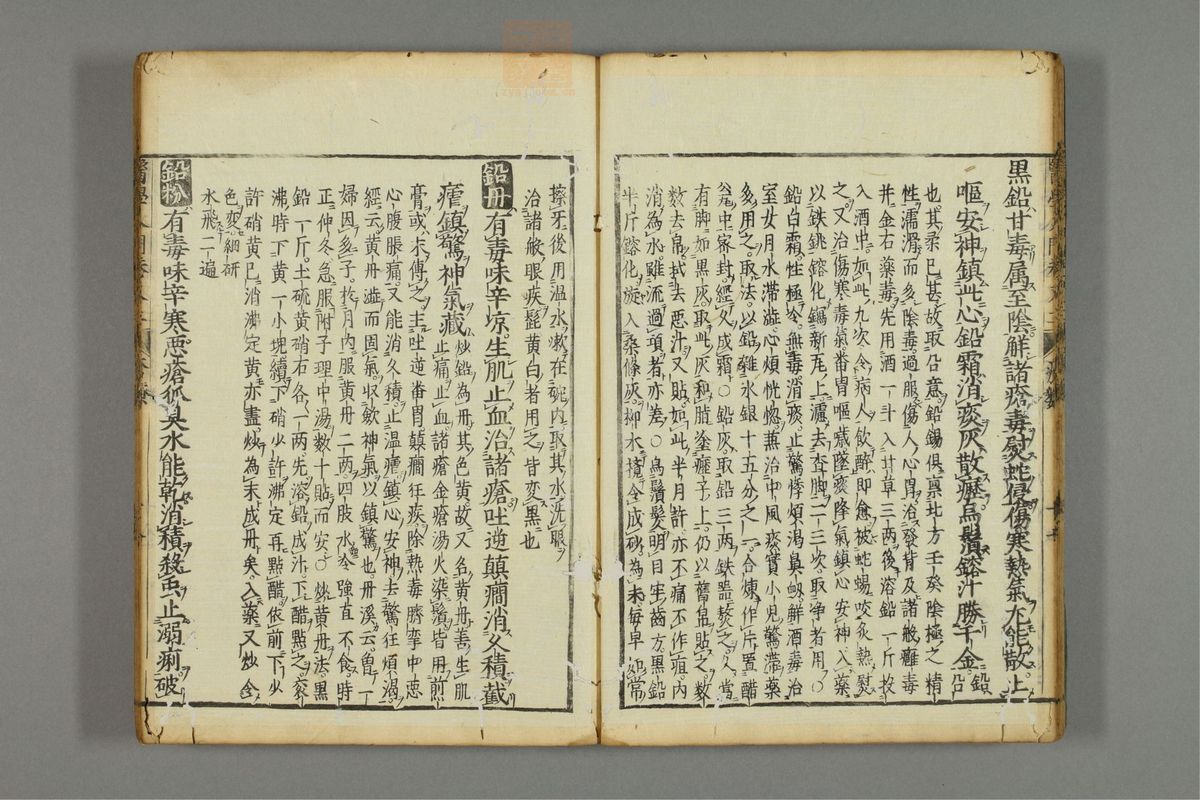 黒鉛甘毒属至陰解諸瘡毒熨蛇侵傷寒熱氣尤能散止
嘔安神鎮此心鉛霜消痰灰散癧烏鬚鎔汁勝千金鉛㕣
也其柔已甚故取㕣意鉛錫俱禀北方壬癸陰極之精
性濡滑而多陰毒過服傷人心胃治發背及諸般癰毒
并金石藥毒先用酒一斗入甘草三両後溶鉛一斤投
入酒中如此九次令病人飲醉即愈被蛇蝎咬炙熱熨
之又治傷寒毒氣番胃嘔噦墜痰降氣鎮心安神入藥
以鉄銚鎔化鍚新瓦上濾去査脚二三次取浄者用○
鉛白霜性極冷無毒消痰止驚悸煩渇鼻衂觧酒毒治
室女月水滞澁心煩恍惚蕉治中風痰實小児驚滞藥
多用之取法以鉛雜水銀十五分之一合煉作片置醋
瓮中宻封經久成霜○鉛灰取鉛三両鉄噐熬之久當
有脚如黒灰取此灰和脂塗癧子上仍以舊帛貼之数
数去帛拭去悪汁又貼如此半月許亦不痛不作瘡内
消為水雖流過項者亦差○烏鬚髪明目牢歯方黒鉛
半斤鎔化旋入桑條灰柳木攪令成砂為末毎早如常
擦牙後用温水漱在碗内取其水洗眼
治諸般眼疾髭黄白者用之皆变黒也
鉛丹有毒味辛凉生肌止血治諸瘡吐逆顛癇消久積截
瘧鎮驚神氣藏炒鉛為丹其色黄故又名黄丹善生肌止痛止血諸瘡金瘡湯火染鬚皆用煎
膏或末傅之主吐逆番胃顛癇年疾除熱毒臍挛中悪
心腹脹痛又能消久積止温瘧鎮心安神去驚狂煩渇
經云黄丹澁而固氣収歛神氣以鎮驚也丹溪云曽一
婦因多子於月内服黄丹二両四肢水冷強直不食時
正仲冬急服附子理中湯数十貼而安○炒黄丹法黒
鉛一斤土硫黄硝石各一両先溶鉛成汁下醋點之衮
沸時下黄一小塊續下硝少許沸定再點醋依前下少
許硝黄已消沸定黄亦盡炒為末成丹矣入藥又炒令
色変細研
水飛二遍
鉛粉有毒味辛寒悪瘡狐臭水能乾消積殺虫止溺痢破